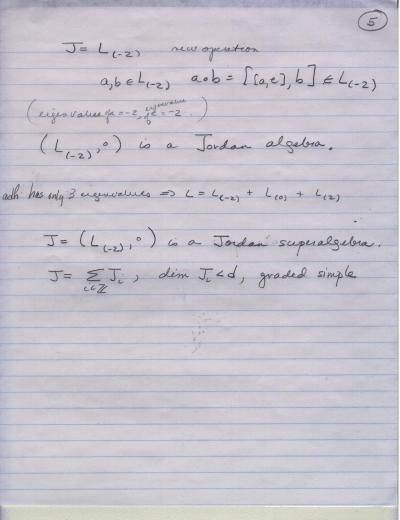 5
J = L₍₋₂₎ new operation
a,b ∈ L₍₋₂₎ a∘b = [[a,e],b] ∈ L₍₋₂₎
(eigenvalue of a = -2, eigenvalue of b = -2.)
(L₍₋₂₎,∘) is a Jordan algebra.
adh has only 3 eigenvalues ⇒ L = L₍₋₂₎ + L₍₀₎ + L₍₂₎
J = (L₍₋₂₎,∘) is a Jordan superalgebra.
J = ∑_{i∈ℤ} J_i, dim J_i < d, graded simple